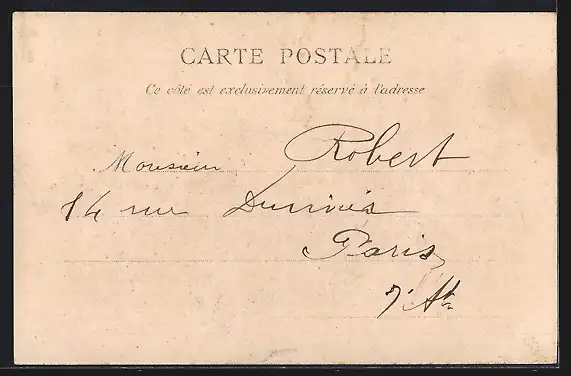 CARTE POSTALE
Ce côté est exclusivement réservé à l'adresse
Monsieur Robert
14 rue
Paris